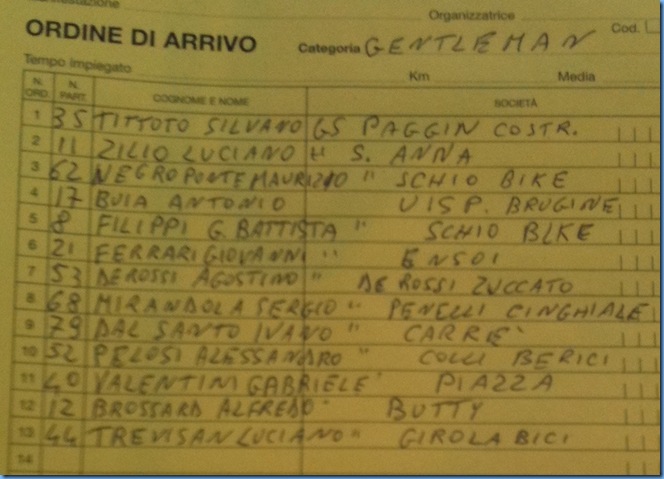 Manifestazione
Organizzatrice
Cod.
ORDINE DI ARRIVO
Categoria GENTLEMAN
Tempo Impiegato Km Media
N. ORD. N. PART. COGNOME E NOME SOCIETÀ
1 35 TITTOTO SILVANO GS PAGGIN COSTR.
2 11 ZILIO LUCIANO " S. ANNA
3 62 NEGROPONTE MAURIZIO " SCHIO BIKE
4 17 BUIA ANTONIO UISP. BRUGINE
5 8 FILIPPI G. BATTISTA " SCHIO BIKE
6 21 FERRARI GIOVANNI " ENSOI
7 53 DE ROSSI AGOSTINO " DE ROSSI ZUCCATO
8 68 MIRANDOLA SERGIO " PENELLI CINGHIALE
9 79 DAL SANTO IVANO " CARRE'
10 52 PELOSI ALESSANDRO " COLLI BERICI
11 40 VALENTINI GABRIELE " PIAZZA
12 12 BROSSARD ALFREDO " BUTTY
13 44 TREVISAN LUCIANO " GIROLA BICI
14